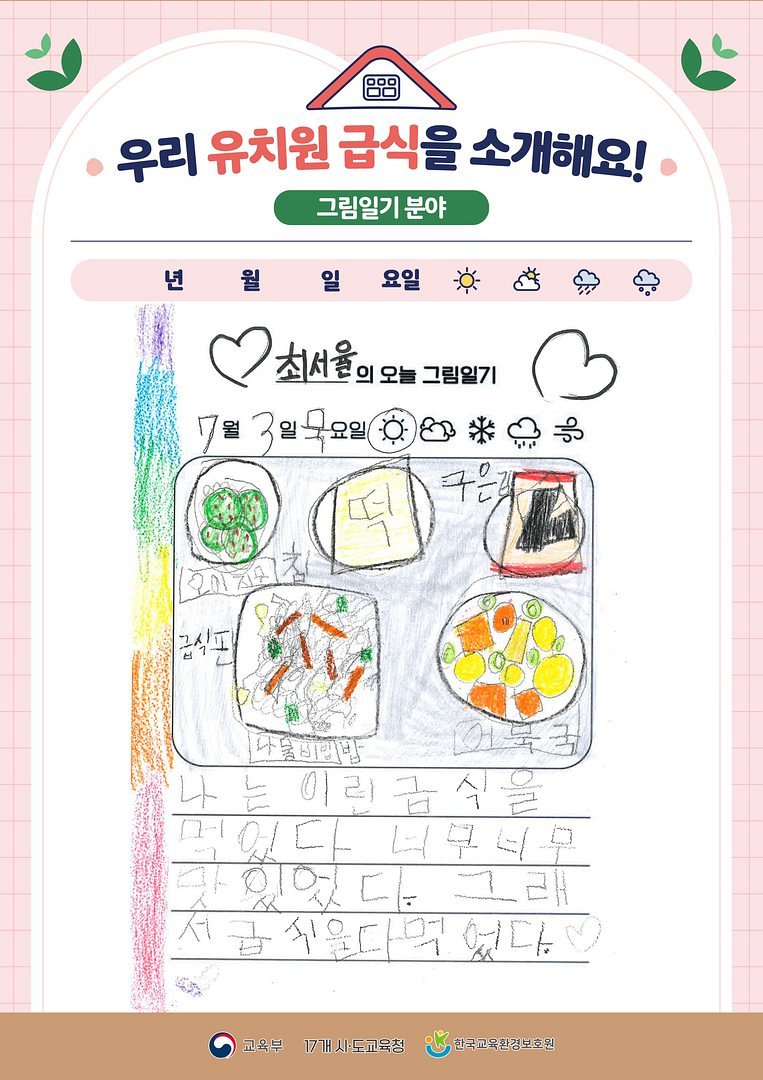 우리 유치원 급식을 소개해요!
그림일기 분야
년 월 일 요일
최서율의 오늘 그림일기
7월 3일 목요일
떡
구은
김
급식판
나물비빔밥
어묵국
나는 이런급식을
먹었다 너무너무
맛있었다. 그래
서 급식을다먹었다.
교육부 17개 시·도교육청 한국교육환경보호원